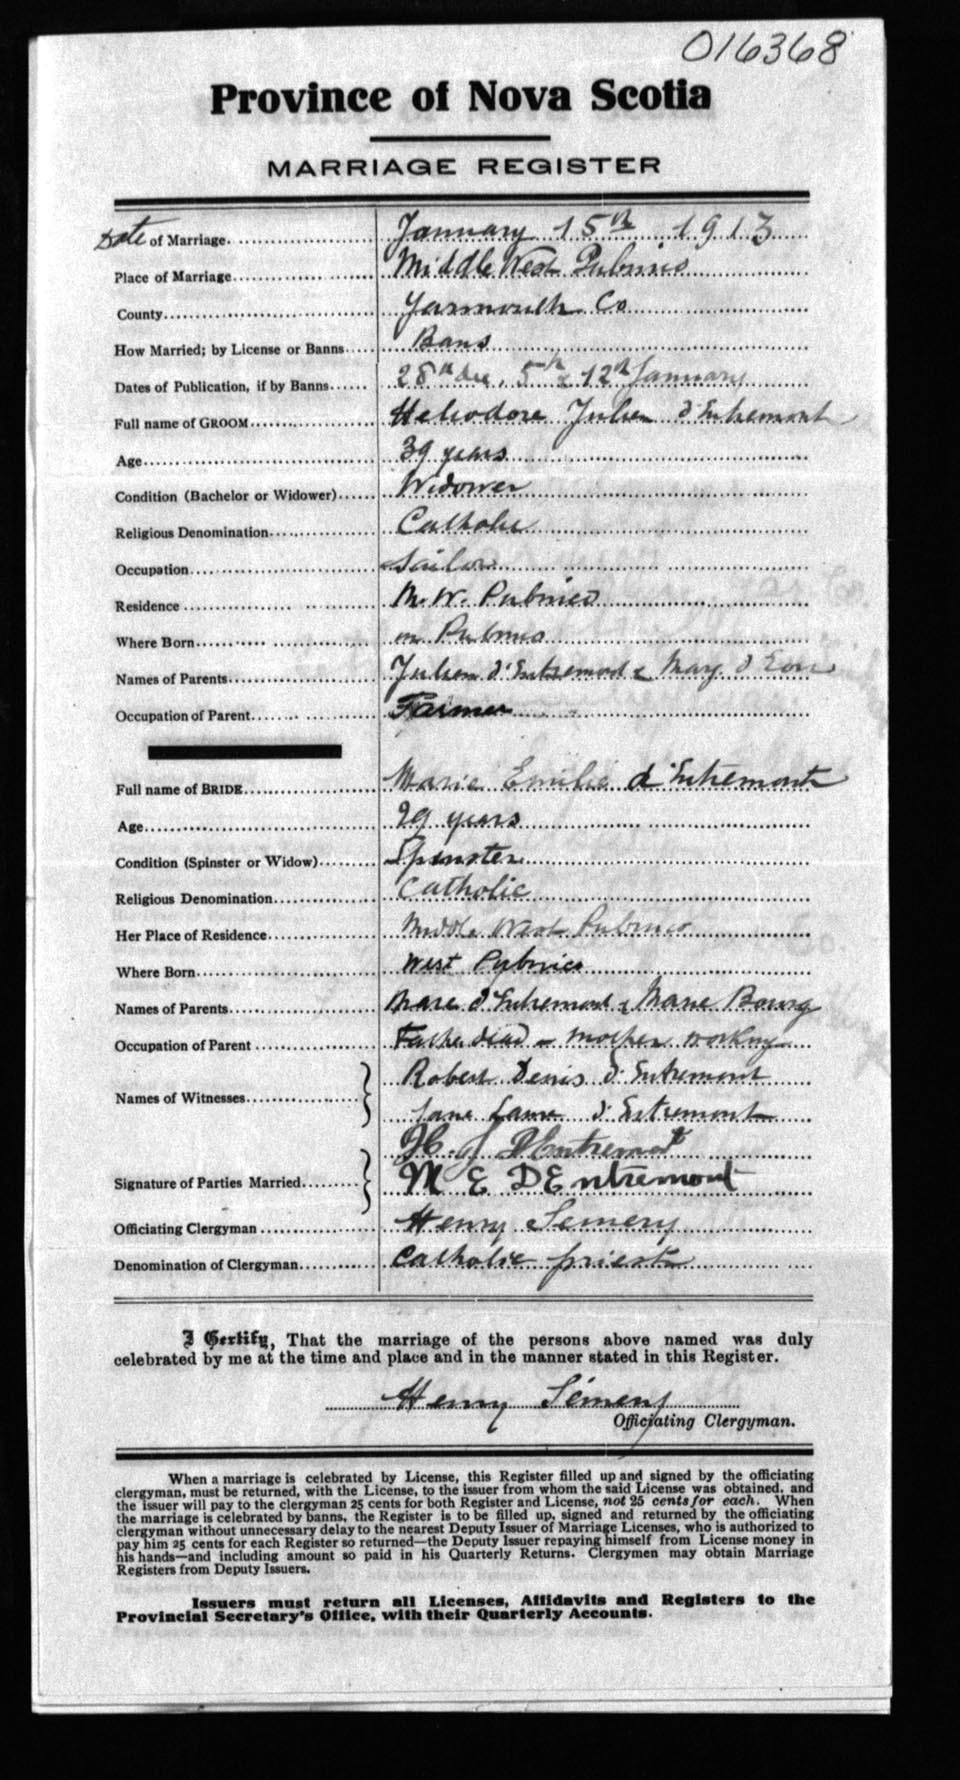 016368
Province of Nova Scotia
MARRIAGE REGISTER
Date of Marriage. January 15th 1913
Place of Marriage Middle West Pubnico
County Yarmouth Co
How Married; by License or Banns Bans
Dates of Publication, if by Banns 28th dec, 5th & 12th January
Full name of GROOM Heliodore Julien d'Entremont
Age 39 years
Condition (Bachelor or Widower) Widower
Religious Denomination Catholic
Occupation Sailor
Residence M. W. Pubnico
Where Born in Pubnico
Names of Parents Julien d'Entremont & Mary d'Eon
Occupation of Parent Farmer
Full name of BRIDE Marie Emilie d'Entremont
Age 29 years
Condition (Spinster or Widow) Spinster
Religious Denomination Catholic
Her Place of Residence Middle West Pubnico
Where Born West Pubnico
Names of Parents Marc d'Entremont & Marie Bourg
Occupation of Parent Father dead - mother working
Names of Witnesses Robert Denis d'Entremont
Jane Laura d'Entremont
Signature of Parties Married H. J. D'Entremont
M E DEntremont
Officiating Clergyman Henry Sémery
Denomination of Clergyman Catholic priest
I Certify, That the marriage of the persons above named was duly
celebrated by me at the time and place and in the manner stated in this Register.
Henry Sémery
Officiating Clergyman.
When a marriage is celebrated by License, this Register filled up and signed by the officiating
clergyman, must be returned, with the License, to the issuer from whom the said License was obtained, and
the issuer will pay to the clergyman 25 cents for both Register and License, not 25 cents for each. When
the marriage is celebrated by banns, the Register is to be filled up, signed and returned by the officiating
clergyman without unnecessary delay to the nearest Deputy Issuer of Marriage Licenses, who is authorized to
pay him 25 cents for each Register so returned—the Deputy Issuer repaying himself from License money in
his hands—and including amount so paid in his Quarterly Returns. Clergymen may obtain Marriage
Registers from Deputy Issuers.
Issuers must return all Licenses, Affidavits and Registers to the
Provincial Secretary's Office, with their Quarterly Accounts.